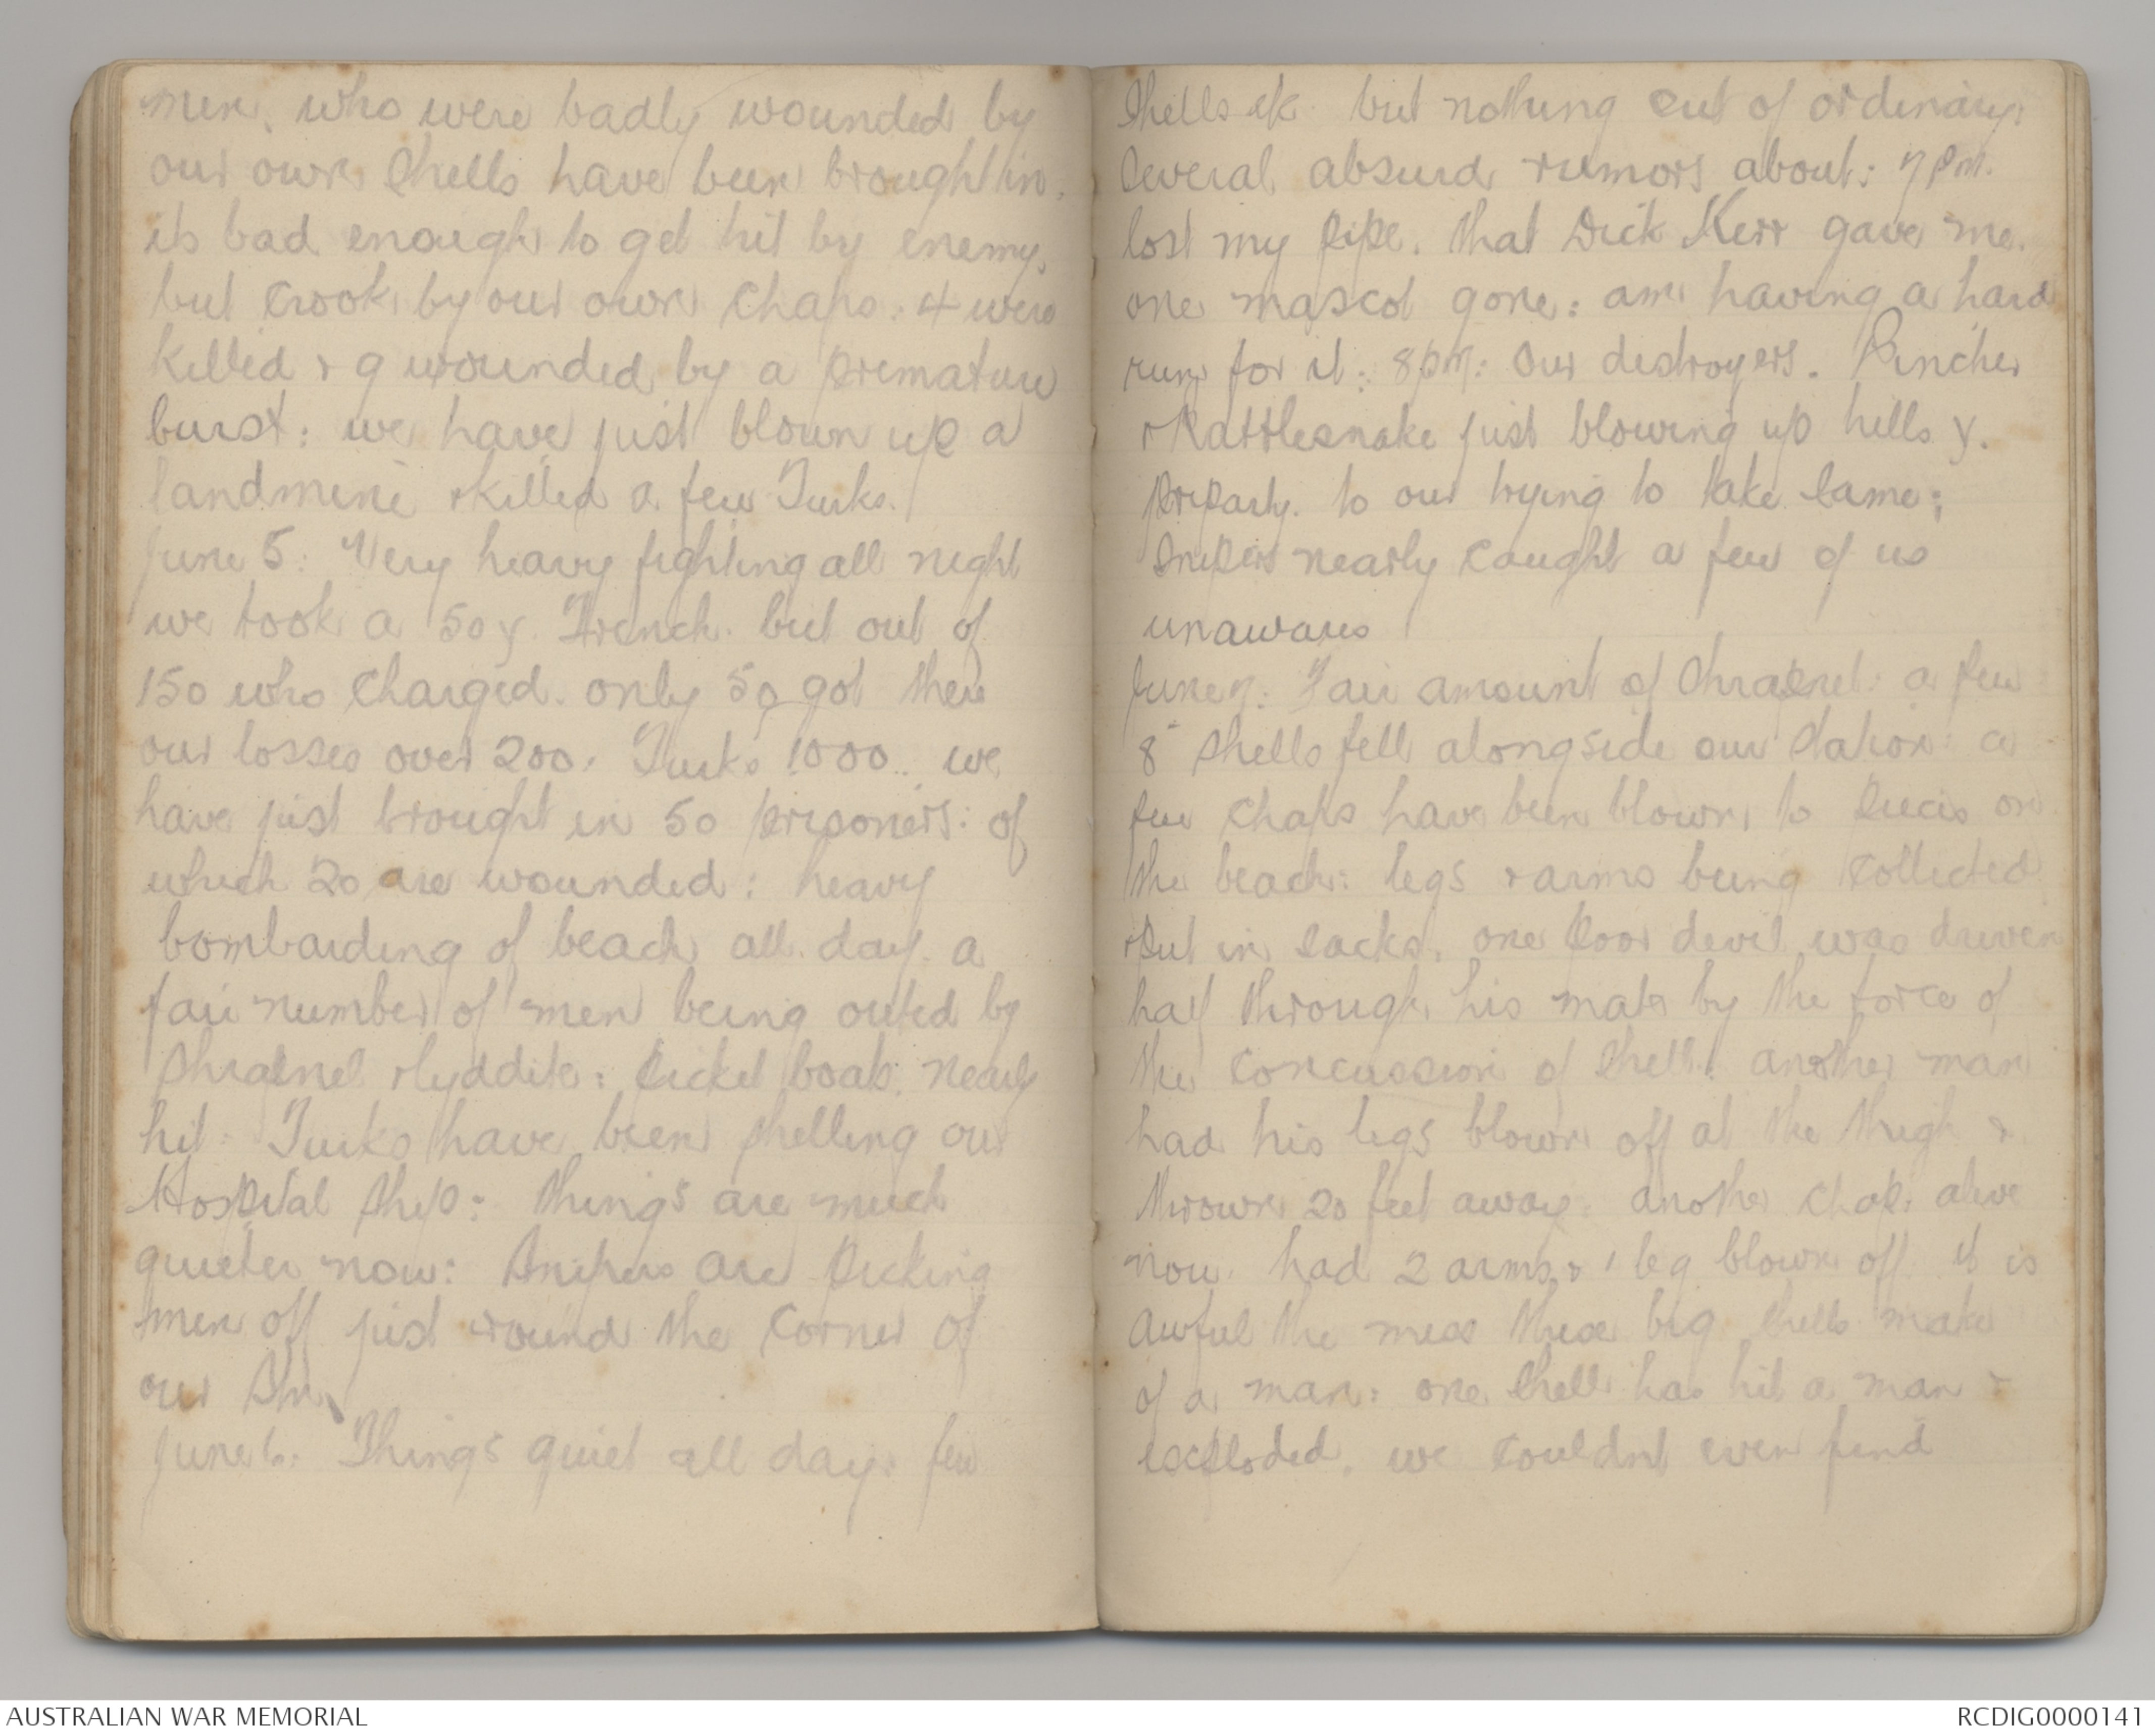 men, who were badly wounded by
our own shells have been brought in.
its bad enough to get hit by enemy,
but crook by our own chaps. 4 were
killed & 9 wounded by a premature
burst: we have just blown up a
landmine & killed a few Turks.
June 5: Very heavy fighting all night
we took a 50 y. Trench. but out of
150 who charged. only 50 got there
our losses over 200. Turks 1000.. we
have just brought in 50 prisoners: of
which 20 are wounded: heavy
bombarding of beach all. day. a
fair number of men being outed by
shrapnel & lyddite: picket boats. nearly
hit. Turks have been shelling our
Hospital ship: things are much
quieter now: Snipers are picking
men off just round the corner of
our Stn.
June 6: Things quiet all day: few
shells etc. but nothing out of ordinary:
Several absurd rumors about: 7 pm.
lost my pipe. that Dick Kerr gave me.
one mascot gone: am having a hard
run for it: 8 pm: Our destroyers. Pincher
& Rattlesnake just blowing up hills y.
preparty. to our trying to take same;
Snipers nearly caught a few of us
unawares
June 7: Fair amount of shrapnel: a few
8" shells fell alongside our station: a
few chaps have been blown to pieces on
the beach: legs & arms being collected
& put in sacks. one poor devil was driven
half through his mate by the force of
the concussion of shell: another man
had his legs blown off at the thigh &
thrown 20 feet away: another chap. alive
now. had 2 arms & 1 leg blown off. it is
awful the mess these big shells make
of a man: one shell has hit a man &
exploded. we couldnt even find
AUSTRALIAN WAR MEMORIAL
RCDIG0000141